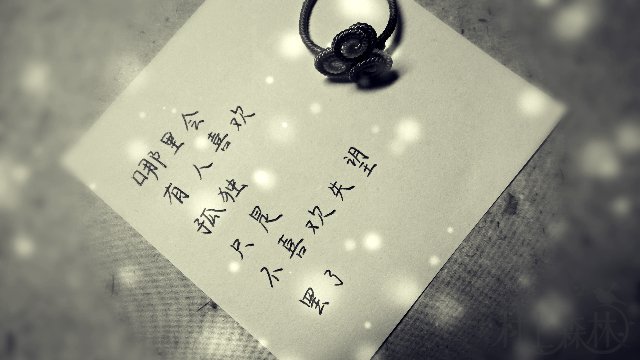 哪里会
有人喜欢
孤独
只是
不喜欢失望
罢了
村上森林